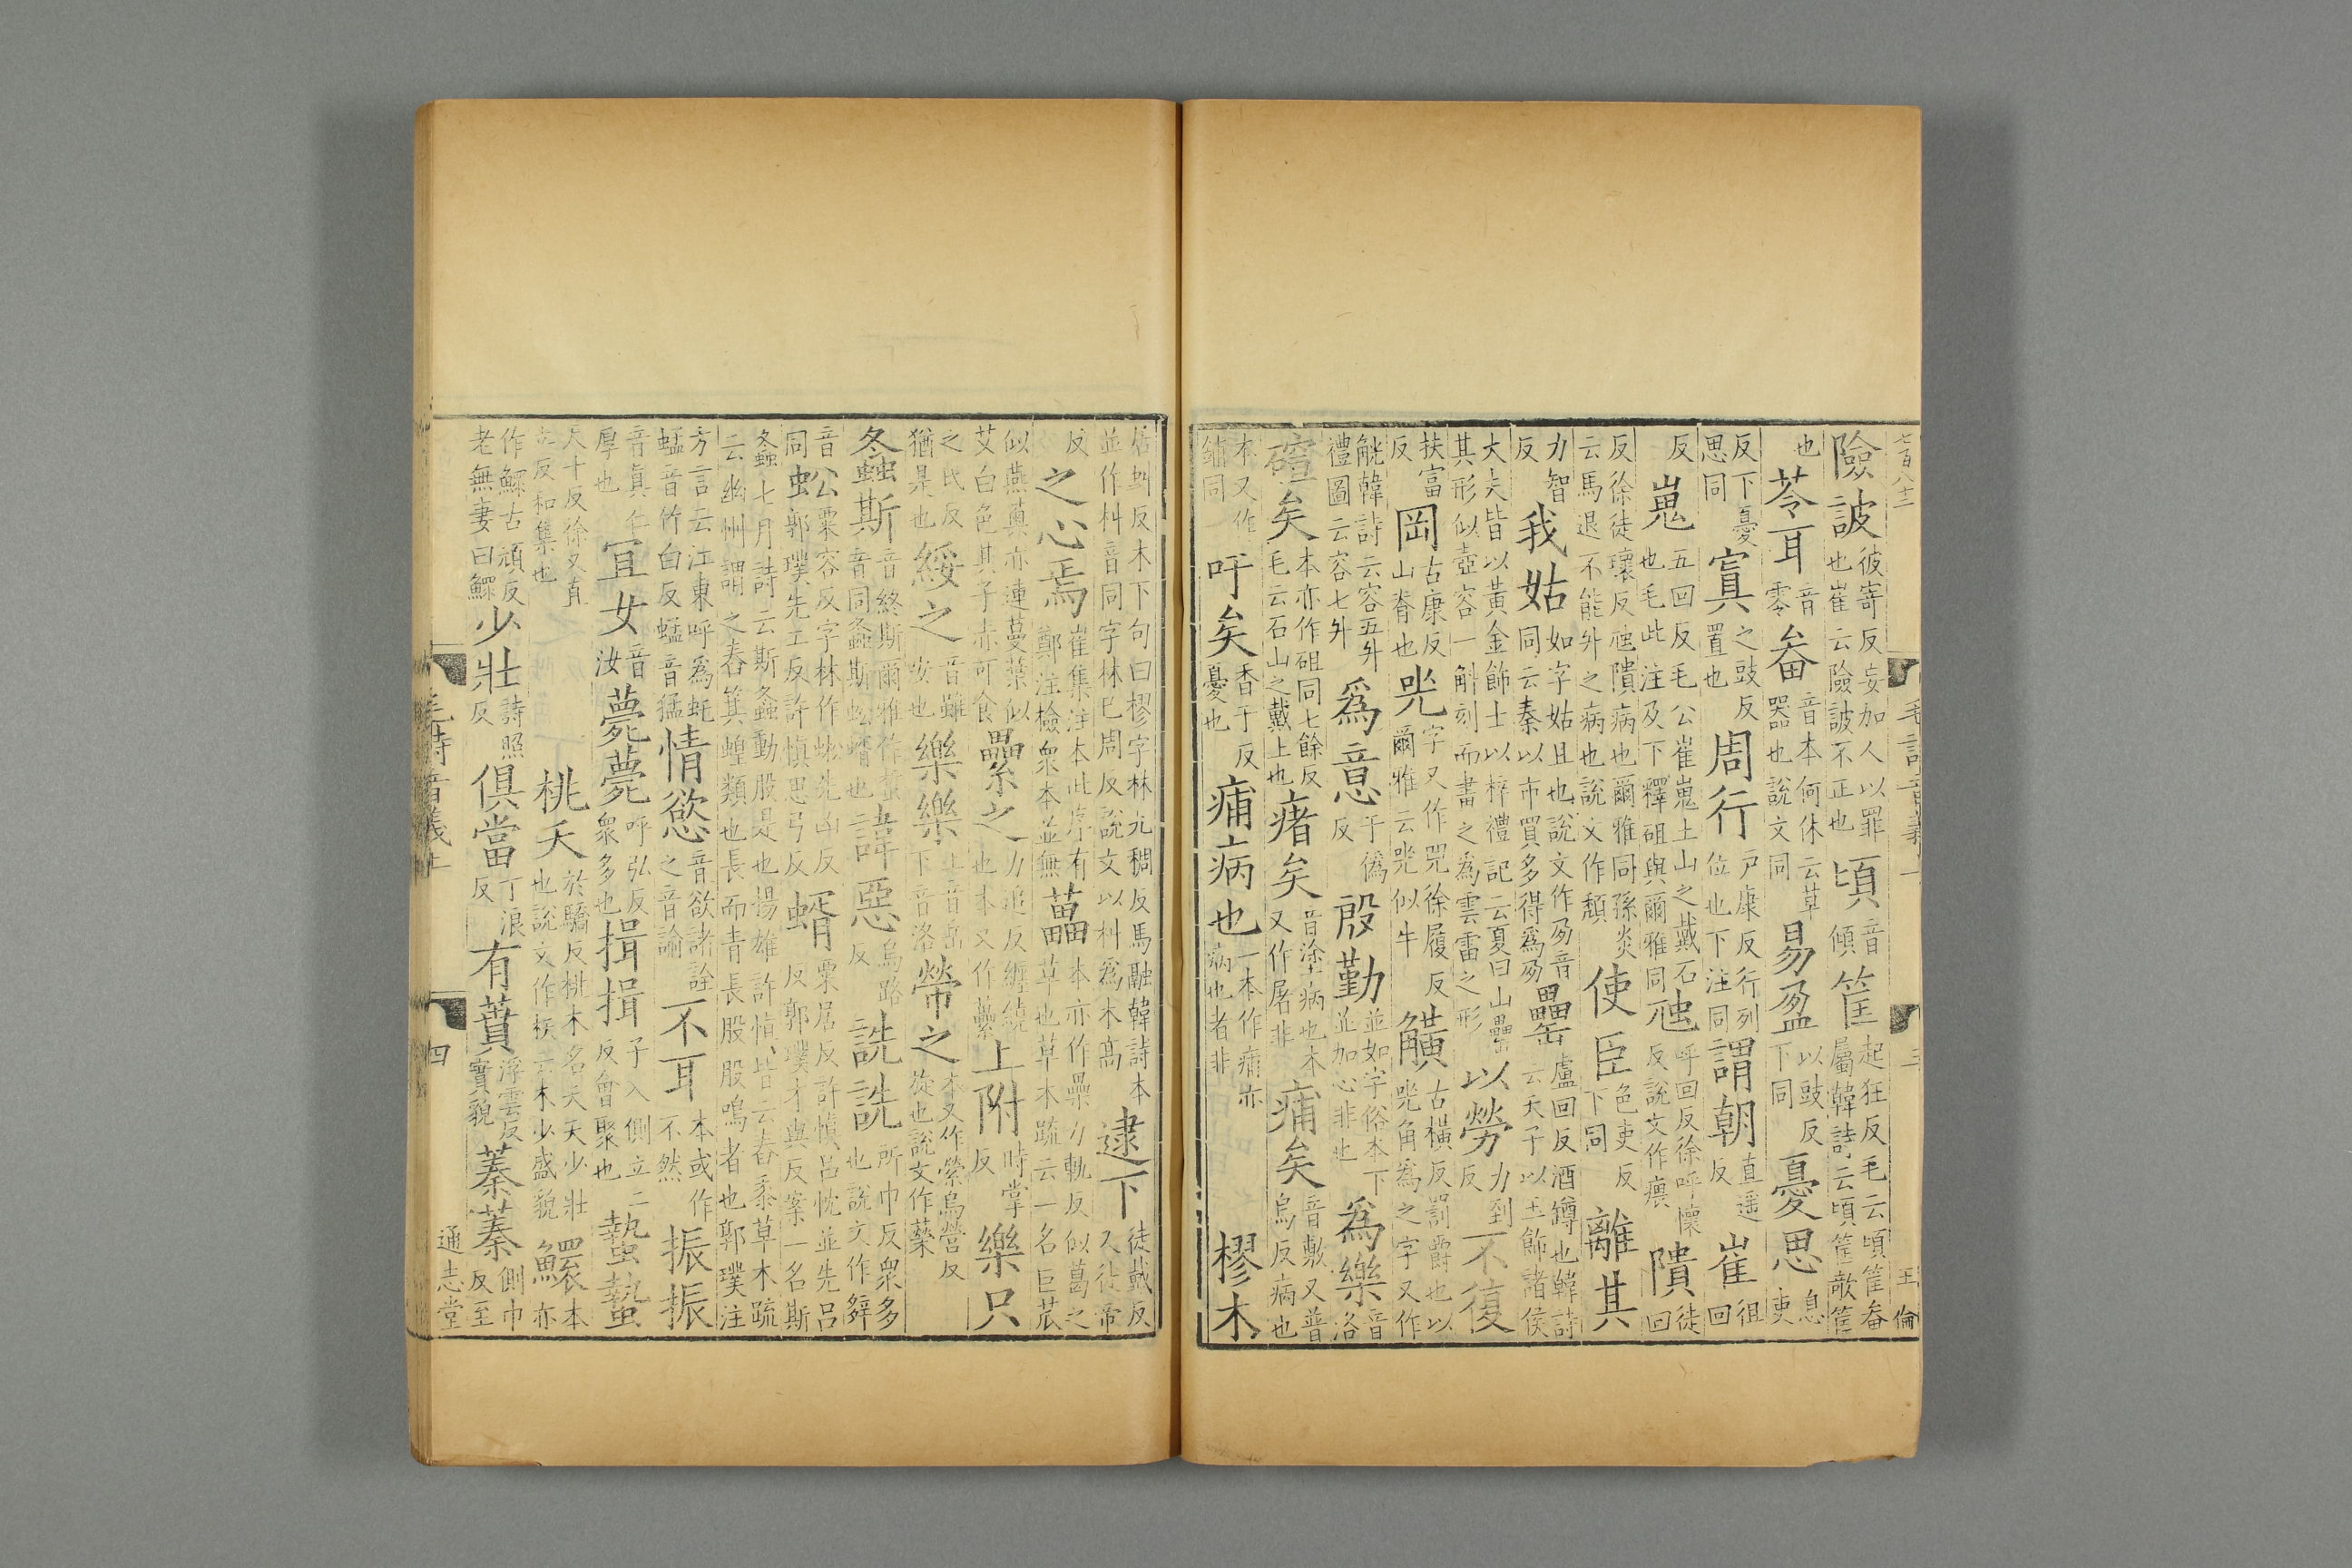 七百八十二　毛詩音義上　三　王倫
險詖彼寄反妄加人以罪也崔云險詖不正也頃音傾筐起狂反毛云頃筐畚屬韓詩云頃筐欹筐
也苓耳音零畚音本何休云草器也說文同易盈以豉反下同憂思息吏
反下憂思同寘之豉反置也周行戶康反行列位也下注同謂朝直遥反崔徂回
反嵬五回反毛公崔嵬土山之戴石也毛此注及下釋砠與爾雅同虺呼回反徐呼懷反說文作㾯隤徒回
反徐徒壞反虺隤病也爾雅同孫炎云馬退不能升之病也說文作頹使臣色吏反下同離其
力智反我姑如字姑且也說文作夃音同云秦以市買多得爲夃罍盧回反酒罇也韓詩云天子以玉飾諸侯
大夫皆以黃金飾士以梓禮記云夏曰山罍其形似壺容一斛刻而畫之為雲雷之形以勞力到反不復
扶富反岡古康反山脊也兕字又作𠒅徐履反爾雅云兕似牛觵古橫反罰爵也以兕角爲之字又作
觥韓詩云容五升禮圖云容七升爲意于僞反殷勤並如字俗本下並加心非也爲樂音洛
矣本亦作砠同七餘反毛云石山之戴土也瘏矣音塗病也本又作屠非痡矣音敷又普烏反病也
本又作鋪同吁矣香于反憂也痡病也一本作痡亦病也者非樛木
居虯反木下句曰樛字林九稠反馬融韓詩本並作朻音同字林己周反說文以朻爲木高逮下徒戴反又徒帝
反之心焉崔集注本此序有鄭注檢衆本並無藟本亦作虆力軌反似葛之草也草木疏云一名巨苽
似燕薁亦連蔓葉似艾白色其子赤可食纍之力追反纏繞也本又作虆上附時掌反樂只
之氏反猶是也綏之音雖安也樂樂上音岳下音洛縈之本又作縈烏營反旋也說文作
螽斯音終斯爾雅作蜤音同螽斯蚣蝑也諱惡烏路反詵詵所巾反衆多也說文作𨐔
音同蚣粟容反字林作蚣先凶反郭璞先工反許慎思弓反蝑粟居反許慎呂忱並先呂反郭璞才與反案一名斯
螽七月詩云斯螽動股是也揚雄許慎皆云春黍草木疏云幽州謂之舂箕蝗類也長而青長股股鳴者也郭璞注
方言云江東呼爲虴蜢音竹白反蜢音猛情慾音欲諸詮之音諭不耳本或作不然振振
音眞仁厚也宜女音汝薨薨呼弘反衆多也揖揖子入側立二反會聚也蟄蟄
尺十反徐又直立反和集也桃夭於驕反桃木名夭夭少壯也說文作枖云木少盛貌鰥本亦
作鰥古頑反老無妻曰鰥少壯詩照反俱當丁浪反有蕡浮雲反實貌蓁蓁側巾反至
毛詩音義上　四　通志堂